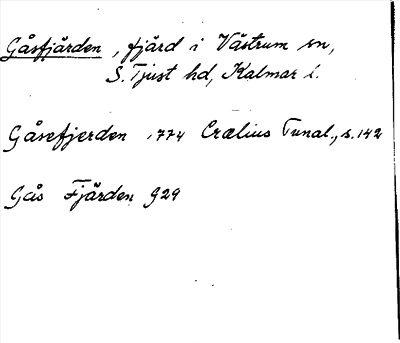 Gåsfjärden, fjärd i Västrum sn,
S. Tjust hd, Kalmar l.
Gåsefjerden 1774 Crælius Tunal., s. 142
Gås Fjärden G29